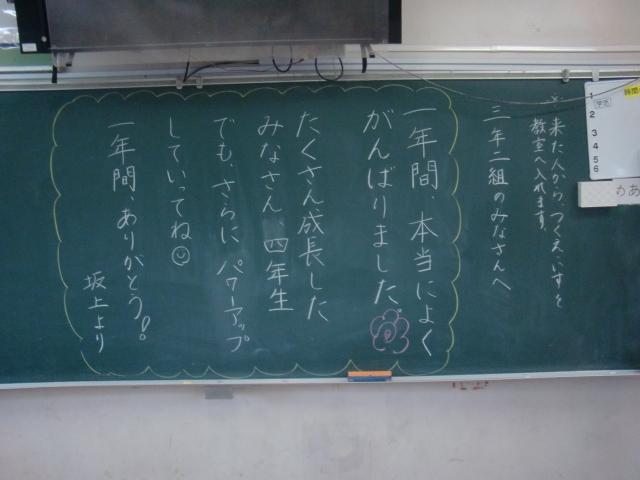 ※来た人から、つくえ・いすを
教室へ入れます。
三年二組のみなさんへ
一年間、本当によく
がんばりました
たくさん成長した
みなさん 四年生
でも、さらに パワーアップ
していってね
一年間、ありがとう!
坂上より
1
学活
2
3
4
5
6
時間
めあ